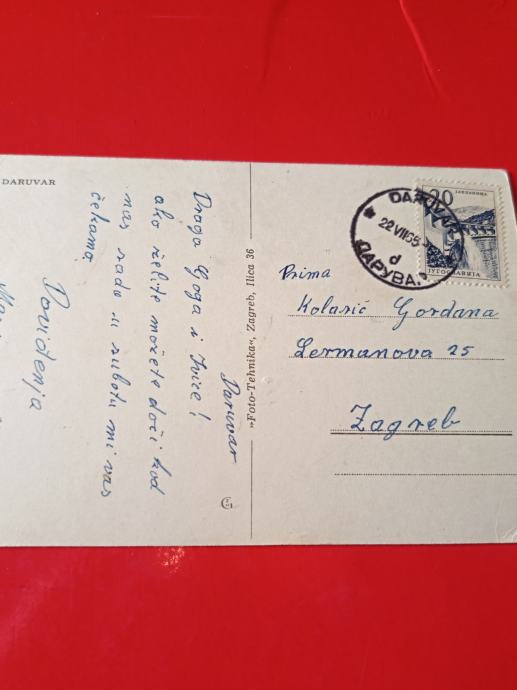 DARUVAR
Daruvar
Draga Goga i Ivice!
ako želite možete doći kod
nas rado u subotu mi vas
čekamo
Doviđenja
»Foto-Tehnika«, Zagreb, Ilica 36
20
ЈУГОСЛАВИЈА
DARUVAR
22 VII 65
d
ДАРУВА
Prima
Kolarić Gordana
Lermanova 25
Zagreb